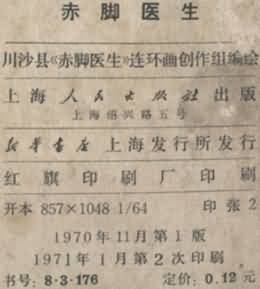 赤脚医生
川沙县《赤脚医生》连环画创作组编绘
上海人民出版社出版
上海绍兴路五号
新华书店上海发行所发行
红旗印刷厂印刷
开本 857×1048 1/64 印张 2
1970年11月第1版
1971年1月第2次印刷
书号：8·3·176 定价：0.12元